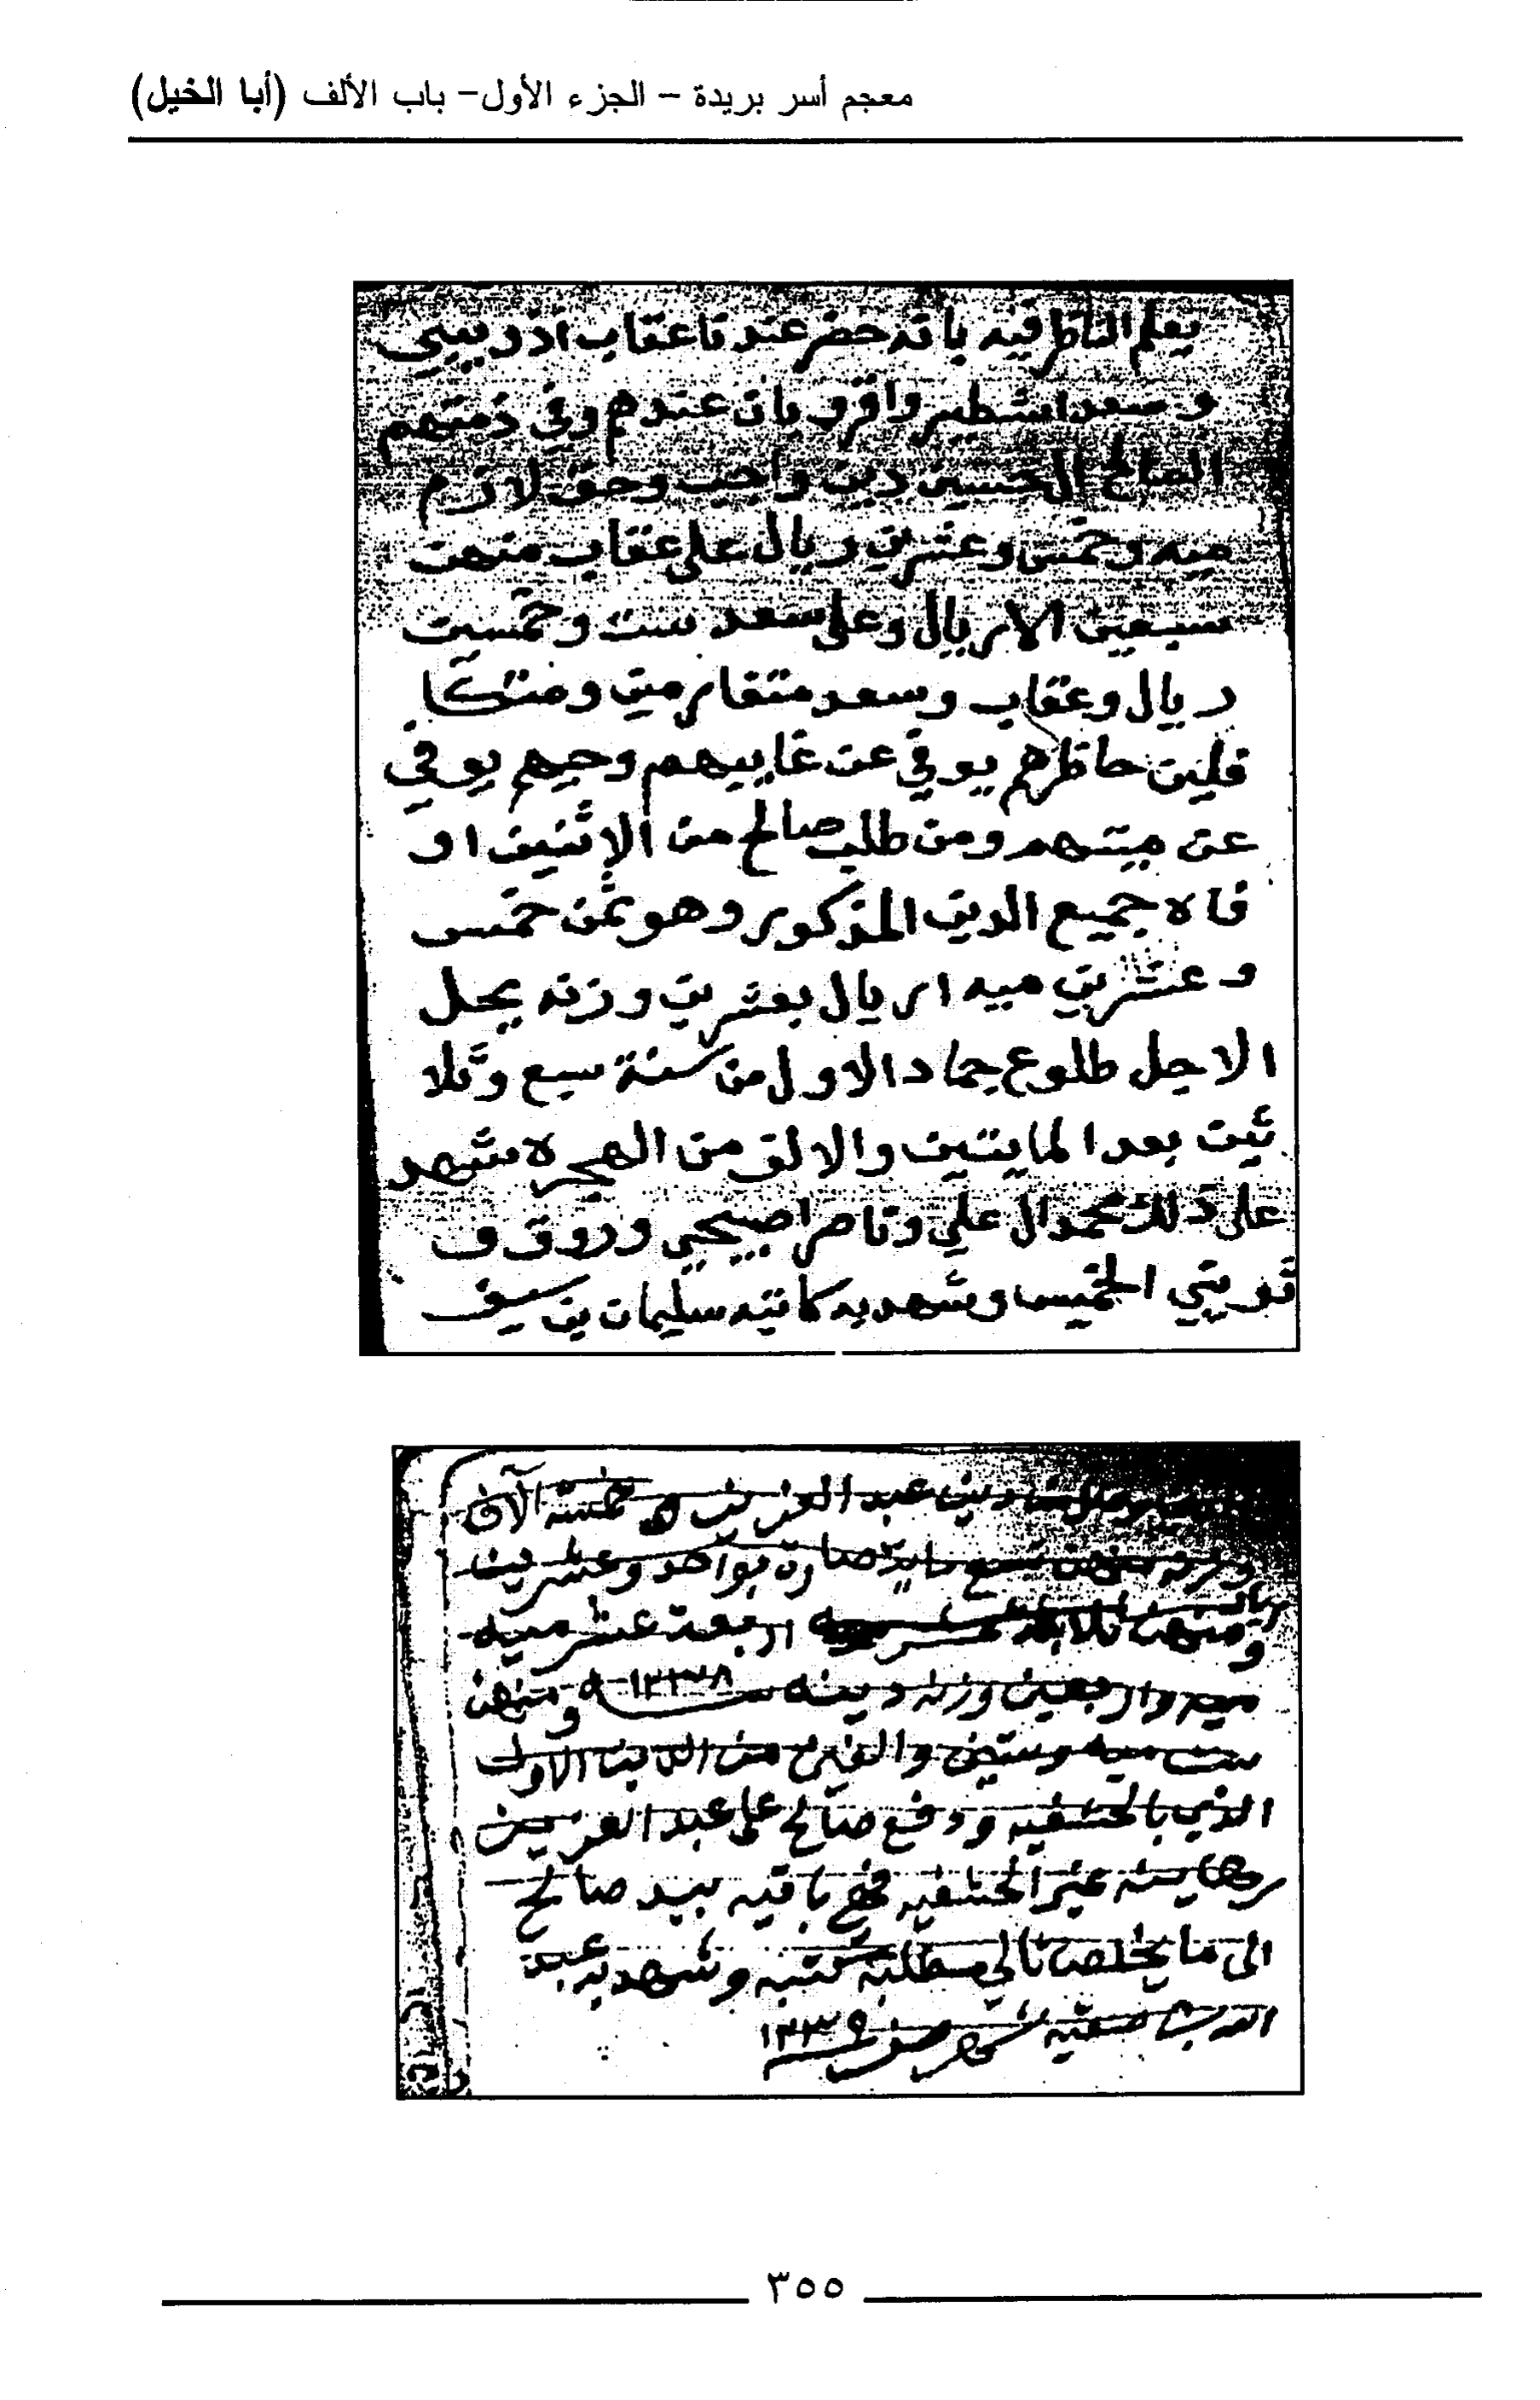 معجم أسر بريدة – الجزء الأول– باب الألف (أبا الخيل)
يعلم الناظر فيه بانه حضر عندنا عقاب اذويبي
وسعد اشطير واقرو بان عندهم وفي ذمتهم
الصالح الحسين دين واجب وحق لازم
ميه وخمس وعشرين ريال على عقاب منهن
سبعين الا ريال وعلى سعد ست وخمسين
ريال وعقاب وسعد متغارمين ومتكا
فلين حاظرهم يوفي عن غايبهم وحيهم يوفي
عن ميتهم ومن طلب صالح من الاثنين او
فاه جميع الدين المذكور وهو ثمن خمس
وعشرين ميه اريال بعشرين وزنه يحل
الاجل طلوع جماد الاول من سنة سبع وثلا
ثين بعد المايتين والالف من الهجره شهد
على ذلك محمد ال علي وناصر اصبيحي وروق ف
قويتي الخميس وشهد به كاتبه سليمان بن سيف
دين عبد العزيز خمسة الآف
وزنه منهن تسع ماية صارة بواحد وعشرين
ريال ومنهن اربعة عشر ميه
ميه واربعين وزنه دينه ١٣٣٨ ومنهن
ست ميه وستين والفين من الدين الاول
الذي بالخشفيه ودفع صالح على عبد العزيز
رهاينه غير الخشفيه فهي باقيه بيد صالح
الى ما يخلص تالي مطلبه كتبه وشهد به عبد
١٣٣٩
٣٥٥